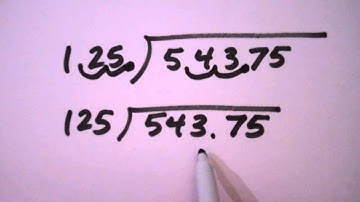 1 25. ) 5 4 3.75
125 ) 543.75